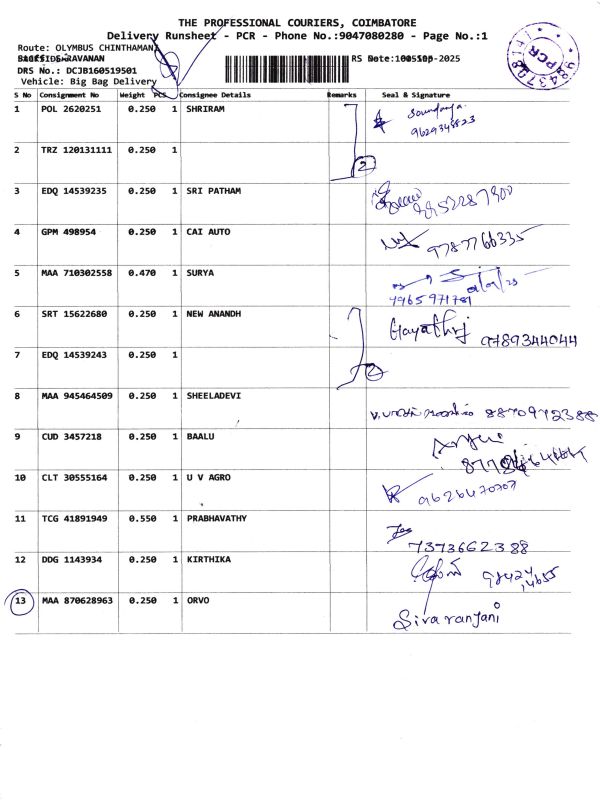 THE PROFESSIONAL COURIERS, COIMBATORE
Delivery Runsheet - PCR - Phone No.:9047080280 - Page No.:1
Route: OLYMBUS CHINTHAMANI
DRS No.: DCJB160519501
Vehicle: Big Bag Delivery
S No Consignment No Weight PCS Consignee Details Remarks Seal & Signature
1 POL 2620251 0.250 1 SHRIRAM Soundarya
2 TRZ 120131111 0.250 1 2
3 EDQ 14539235 0.250 1 SRI PATHAM
4 GPM 498954 0.250 1 CAI AUTO 9787766335
5 MAA 710302558 0.470 1 SURYA
4965971781
6 SRT 15622680 0.250 1 NEW ANANDH Gayathri 9789344044
7 EDQ 14539243 0.250 1 2
8 MAA 945464509 0.250 1 SHEELADEVI 8870972388
9 CUD 3457218 0.250 1 BAALU
10 CLT 30555164 0.250 1 U V AGRO 9626470707
11 TCG 41891949 0.550 1 PRABHAVATHY
7373662388
12 DDG 1143934 0.250 1 KIRTHIKA
13 MAA 870628963 0.250 1 ORVO Sivaranjani